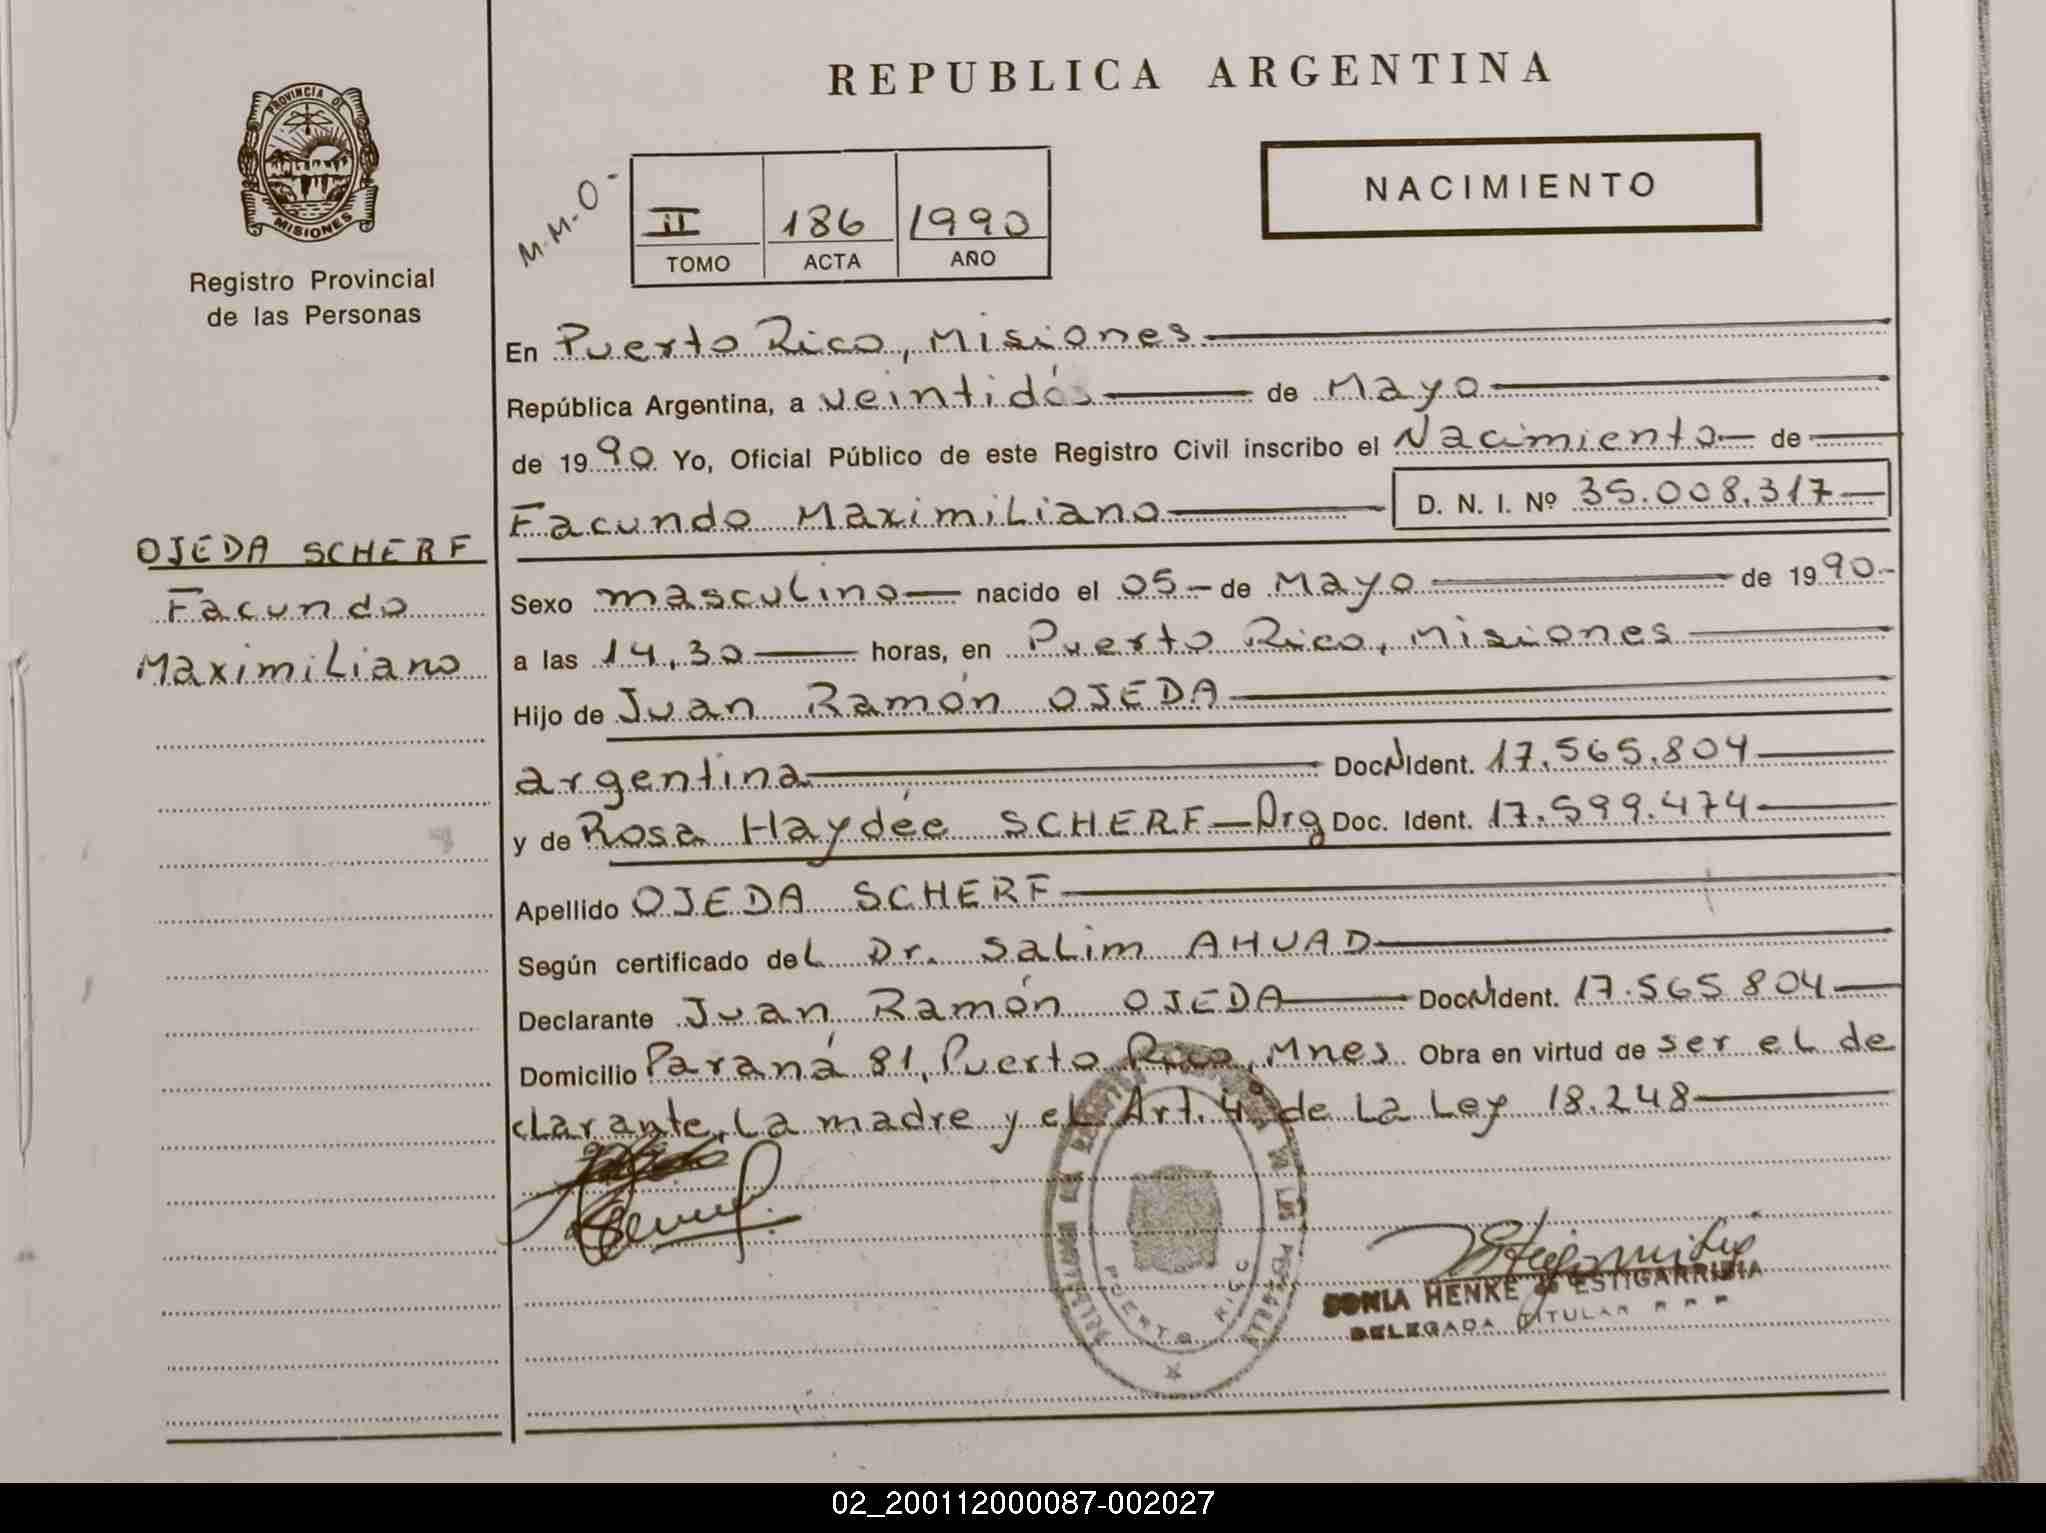 REPUBLICA ARGENTINA
PROVINCIA DE
MISIONES
Registro Provincial
de las Personas
M.M.O-
II 186 1990
TOMO ACTA AÑO
NACIMIENTO
En Puerto Rico, Misiones
República Argentina, a veintidós de Mayo
de 1990. Yo, Oficial Público de este Registro Civil inscribo el Nacimiento de
Facundo Maximiliano D. N. I. Nº 35.008.317
OJEDA SCHERF
Facundo
Maximiliano
Sexo masculino nacido el 05 de Mayo de 1990.
a las 14,30 horas, en Puerto Rico, Misiones
Hijo de Juan Ramón OJEDA
argentina Doc.N.Ident. 17.565.804
y de Rosa Haydée SCHERF - Arg Doc. Ident. 17.599.474
Apellido OJEDA SCHERF
Según certificado del Dr. Salim AHUAD
Declarante Juan Ramón OJEDA Doc.N.Ident. 17.565.804
Domicilio Paraná 81, Puerto Rico, Mnes. Obra en virtud de ser el de
clarante, la madre y el Art. 4º de la Ley 18.248
PUERTO RICO
SONIA HENKE de ESTIGARRIBIA
DELEGADA TITULAR R R P
02_200112000087-002027